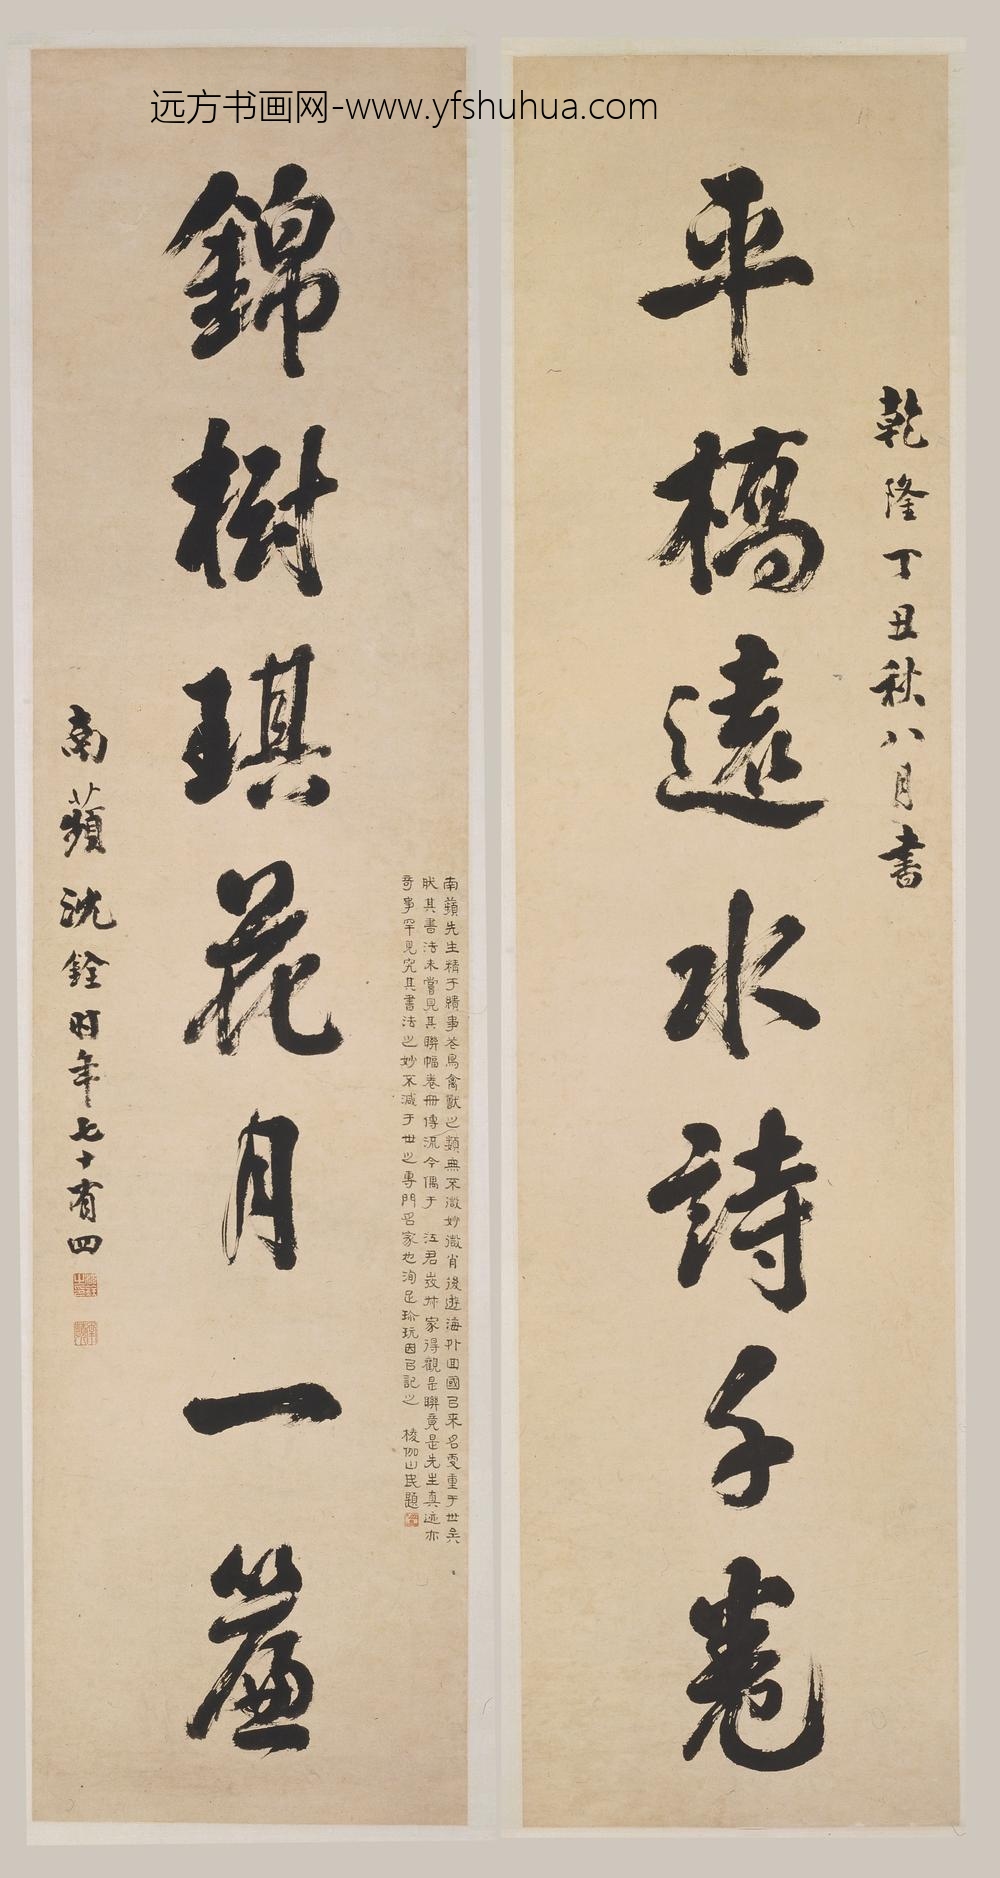 远方书画网-www.yfshuhua.com
乾隆丁丑秋八月書
平橋遠水詩千卷
錦樹琪花月一簾
南蘋沈銓時年七十有四
南蘋先生精于繢事花鳥禽獸之類無不微妙微肖後遊海外回國已来名更重于世矣
其書法未嘗見其聯幅卷冊傳流今偶于 江君 家得觀是聯竟是先生真迹亦
奇事罕見究其書法之妙不減于世之專門名家也洵足珍玩因已記之 棱伽山民題